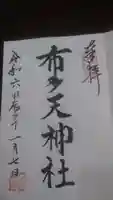 奉拝
布多天神社
令和六甲辰年十一月七日